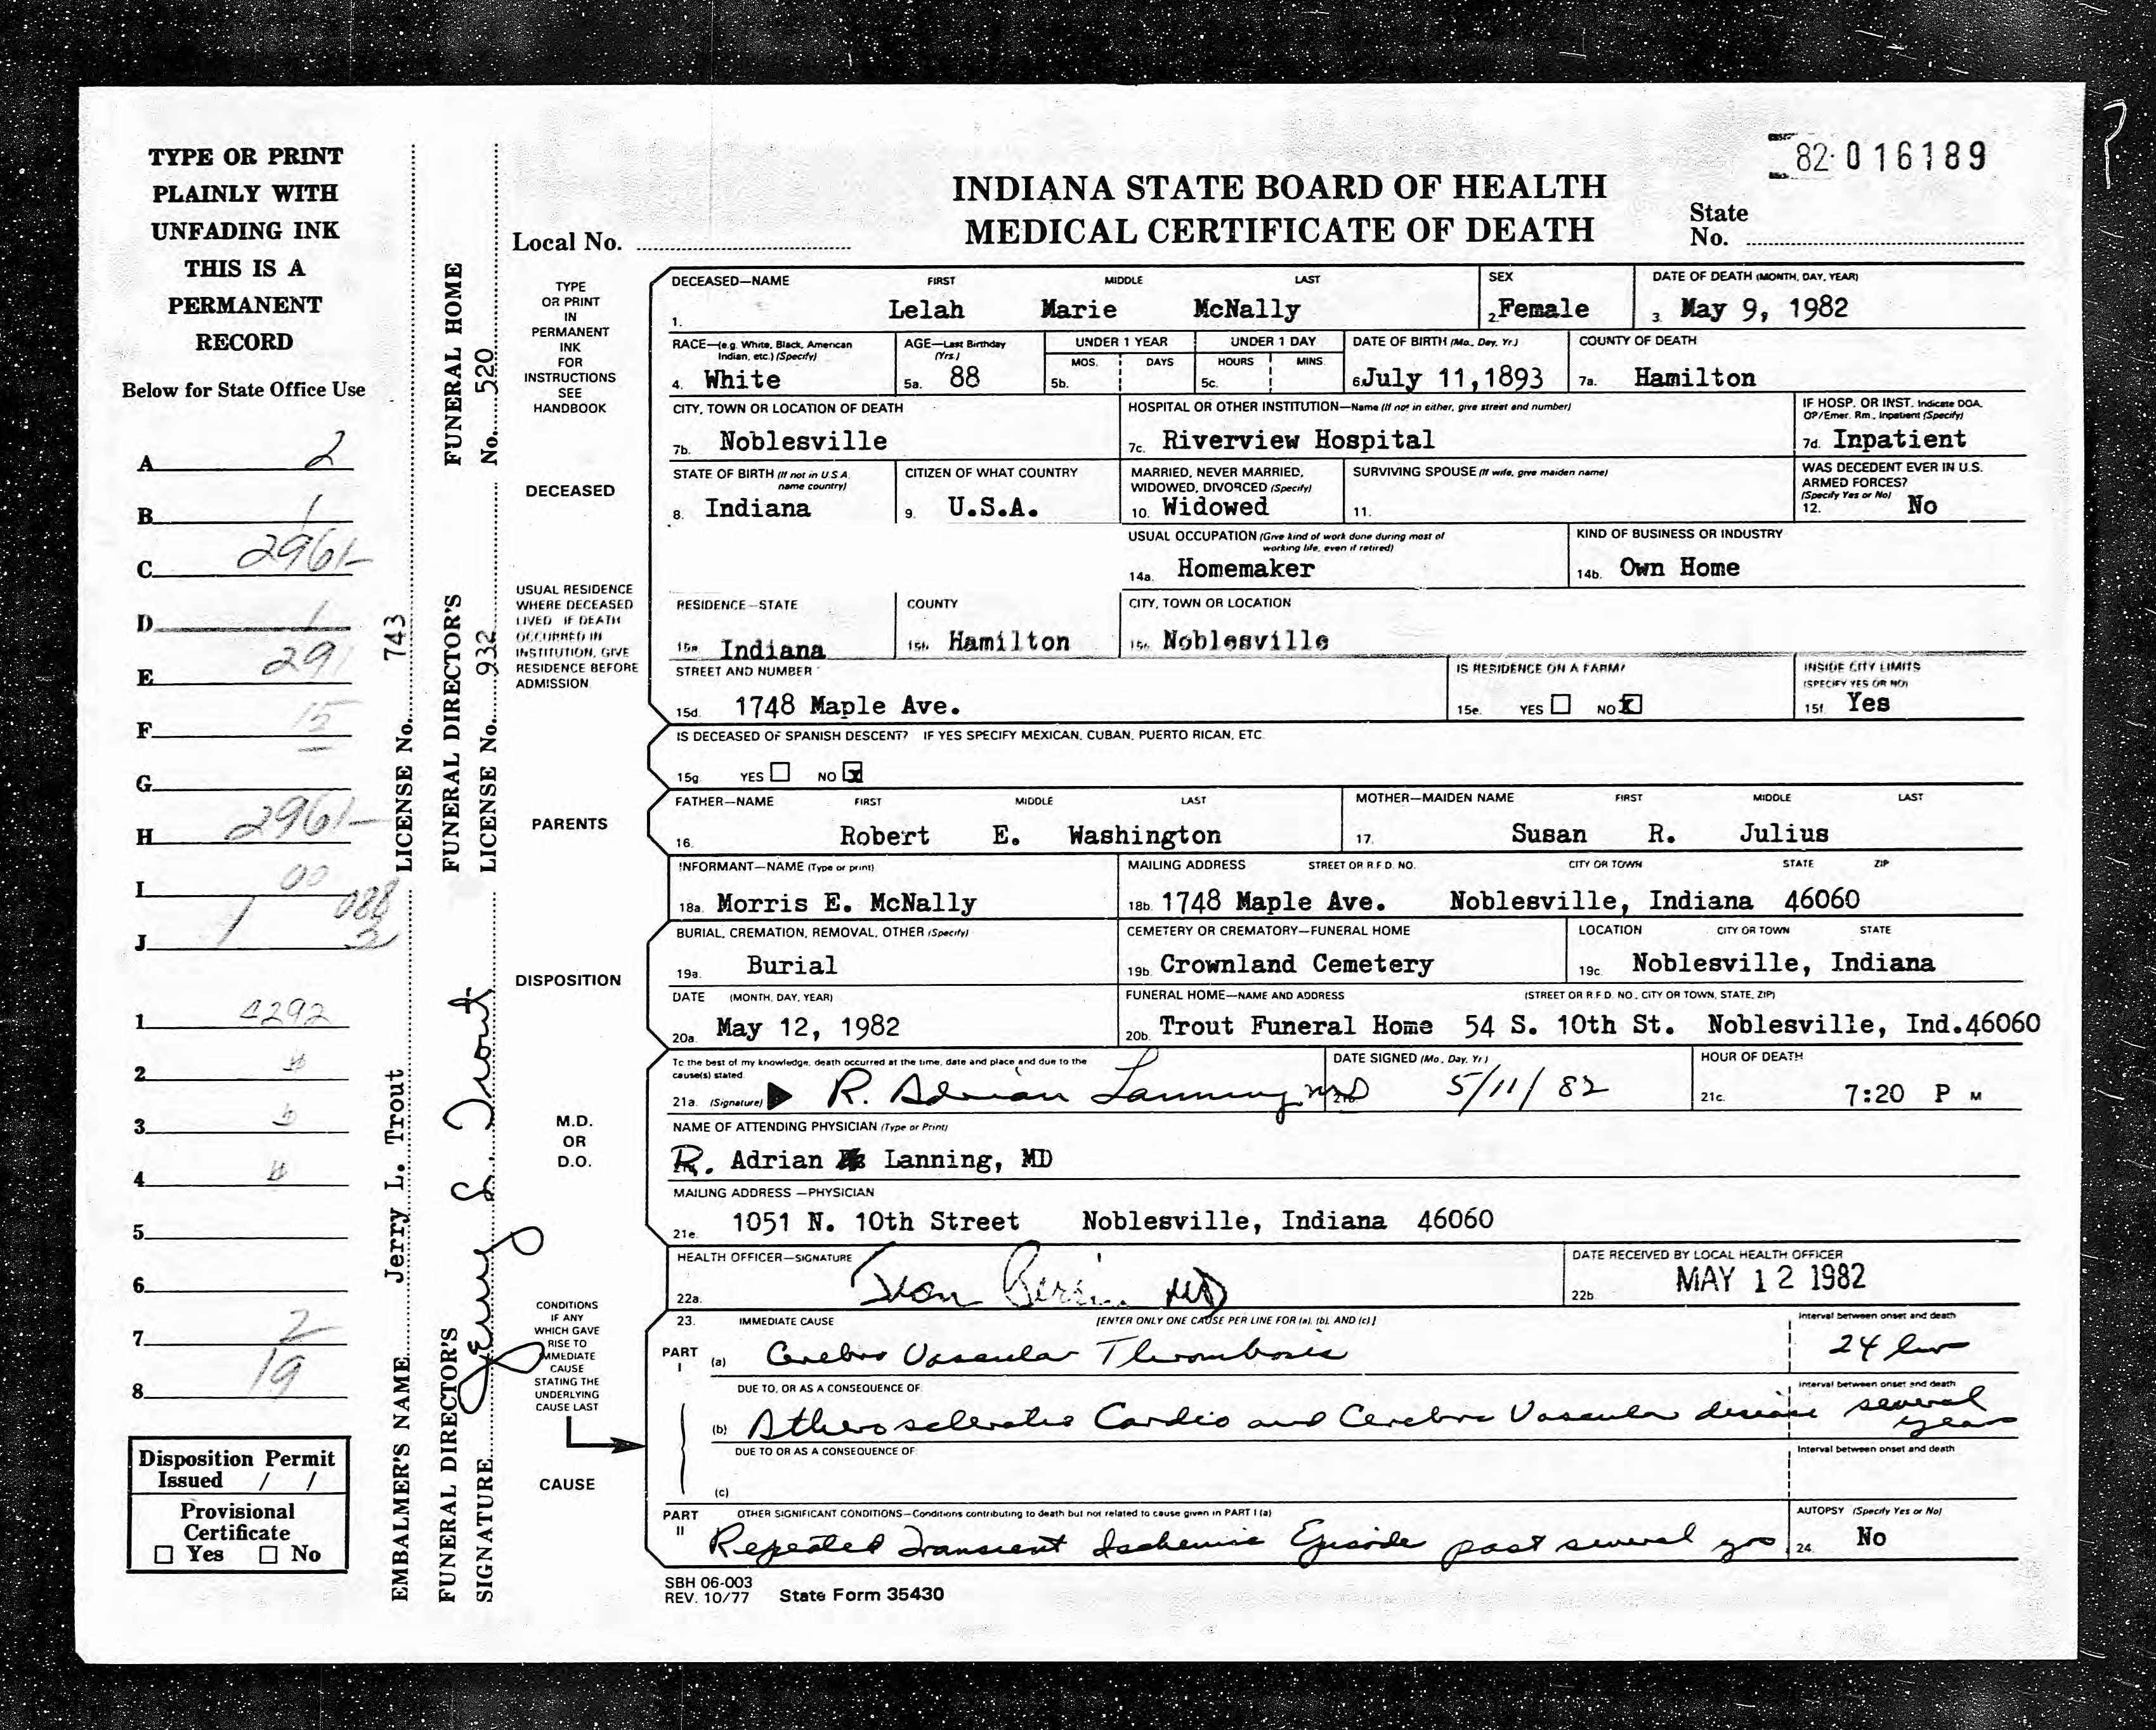 82-016189
INDIANA STATE BOARD OF HEALTH
MEDICAL CERTIFICATE OF DEATH
Local No.
State
No.
TYPE OR PRINT
PLAINLY WITH
UNFADING INK
THIS IS A
PERMANENT
RECORD
Below for State Office Use
A 2
B 1
C 2961-
D 1
E 291
F 15
G
H 2961-
I 00
088
J 1 2
1 4292
2
3
4
5
6
7 2
8 19
Disposition Permit
Issued / /
Provisional
Certificate
☐ Yes ☐ No
EMBALMER'S NAME Jerry L. Trout LICENSE No. 743
FUNERAL DIRECTOR'S FUNERAL DIRECTOR'S FUNERAL HOME
SIGNATURE Jerry L. Trout LICENSE No. 932 No. 520
TYPE
OR PRINT
IN
PERMANENT
INK
FOR
INSTRUCTIONS
SEE
HANDBOOK
DECEASED
USUAL RESIDENCE
WHERE DECEASED
LIVED IF DEATH
OCCURRED IN
INSTITUTION, GIVE
RESIDENCE BEFORE
ADMISSION.
PARENTS
DISPOSITION
M.D.
OR
D.O.
CONDITIONS
IF ANY
WHICH GAVE
RISE TO
IMMEDIATE
CAUSE
STATING THE
UNDERLYING
CAUSE LAST
CAUSE
DECEASED—NAME FIRST MIDDLE LAST SEX DATE OF DEATH (MONTH, DAY, YEAR)
1. Lelah Marie McNally 2. Female 3. May 9, 1982
RACE—(e.g. White, Black, American AGE—Last Birthday UNDER 1 YEAR UNDER 1 DAY DATE OF BIRTH (Mo., Day, Yr.) COUNTY OF DEATH
Indian, etc.) (Specify) (Yrs.) MOS. DAYS HOURS MINS.
4. White 5a. 88 5b. 5c. 6. July 11,1893 7a. Hamilton
CITY, TOWN OR LOCATION OF DEATH HOSPITAL OR OTHER INSTITUTION—Name (If not in either, give street and number) IF HOSP. OR INST. Indicate DOA,
OP/Emer. Rm., Inpatient (Specify)
7b. Noblesville 7c. Riverview Hospital 7d. Inpatient
STATE OF BIRTH (If not in U.S.A. CITIZEN OF WHAT COUNTRY MARRIED, NEVER MARRIED, SURVIVING SPOUSE (If wife, give maiden name) WAS DECEDENT EVER IN U.S.
name country) WIDOWED, DIVORCED (Specify) ARMED FORCES?
(Specify Yes or No)
8. Indiana 9. U.S.A. 10. Widowed 11. 12. No
USUAL OCCUPATION (Give kind of work done during most of KIND OF BUSINESS OR INDUSTRY
working life, even if retired)
14a. Homemaker 14b. Own Home
RESIDENCE—STATE COUNTY CITY, TOWN OR LOCATION
15a. Indiana 15b. Hamilton 15c. Noblesville
STREET AND NUMBER IS RESIDENCE ON A FARM? INSIDE CITY LIMITS
(SPECIFY YES OR NO)
15d. 1748 Maple Ave. 15e. YES ☐ NO ☒ 15f. Yes
IS DECEASED OF SPANISH DESCENT? IF YES SPECIFY MEXICAN, CUBAN, PUERTO RICAN, ETC.
15g. YES ☐ NO ☒
FATHER—NAME FIRST MIDDLE LAST MOTHER—MAIDEN NAME FIRST MIDDLE LAST
16. Robert E. Washington 17. Susan R. Julius
INFORMANT—NAME (Type or print) MAILING ADDRESS STREET OR R.F.D. NO. CITY OR TOWN STATE ZIP
18a. Morris E. McNally 18b. 1748 Maple Ave. Noblesville, Indiana 46060
BURIAL, CREMATION, REMOVAL, OTHER (Specify) CEMETERY OR CREMATORY—FUNERAL HOME LOCATION CITY OR TOWN STATE
19a. Burial 19b. Crownland Cemetery 19c. Noblesville, Indiana
DATE (MONTH, DAY, YEAR) FUNERAL HOME—NAME AND ADDRESS (STREET OR R.F.D. NO., CITY OR TOWN, STATE, ZIP)
20a. May 12, 1982 20b. Trout Funeral Home 54 S. 10th St. Noblesville, Ind.46060
To the best of my knowledge, death occurred at the time, date and place and due to the DATE SIGNED (Mo., Day, Yr.) HOUR OF DEATH
cause(s) stated.
21a. (Signature) R. Adrian Lanning MD 21b. 5/11/82 21c. 7:20 P M
NAME OF ATTENDING PHYSICIAN (Type or Print)
R. Adrian Lanning, MD
MAILING ADDRESS—PHYSICIAN
21e. 1051 N. 10th Street Noblesville, Indiana 46060
HEALTH OFFICER—SIGNATURE DATE RECEIVED BY LOCAL HEALTH OFFICER
22a. MD 22b. MAY 12 1982
23. IMMEDIATE CAUSE [ENTER ONLY ONE CAUSE PER LINE FOR (a), (b), AND (c)] Interval between onset and death
PART I (a) Cerebro Vascular Thrombosis 24 hrs
DUE TO, OR AS A CONSEQUENCE OF: Interval between onset and death
(b) Atherosclerotic Cardio and Cerebro Vascular disease several years
DUE TO OR AS A CONSEQUENCE OF: Interval between onset and death
(c)
PART II OTHER SIGNIFICANT CONDITIONS—Conditions contributing to death but not related to cause given in PART I (a) AUTOPSY (Specify Yes or No)
Repeated Transient Ischemic Episode past several yrs 24. No
SBH 06-003
REV. 10/77 State Form 35430